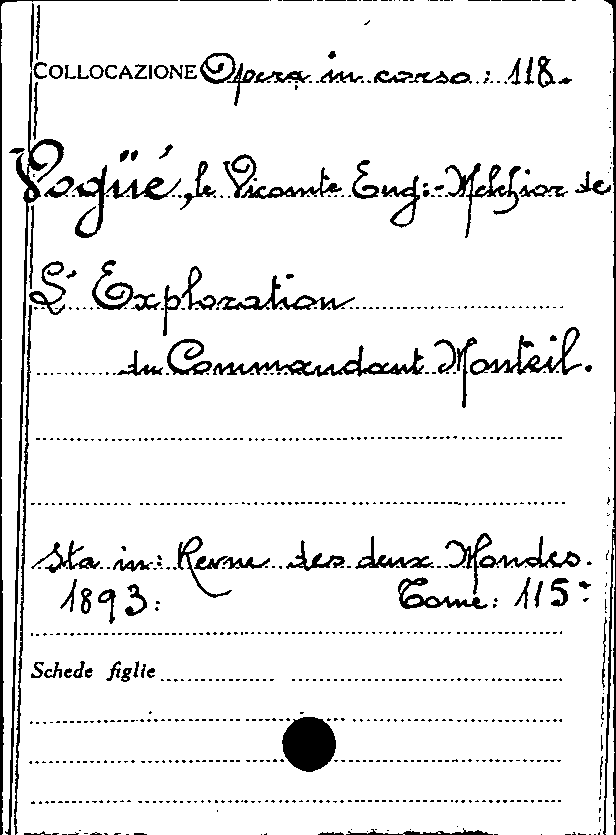 COLLOCAZIONE Opera in corso: 118.
Vogüé, le Vicomte Eug:-Melchior de
L'Exploration
du Commandant Monteil.
Sta in: Revue des deux Mondes.
1893: Tome: 115:
Schede figlie